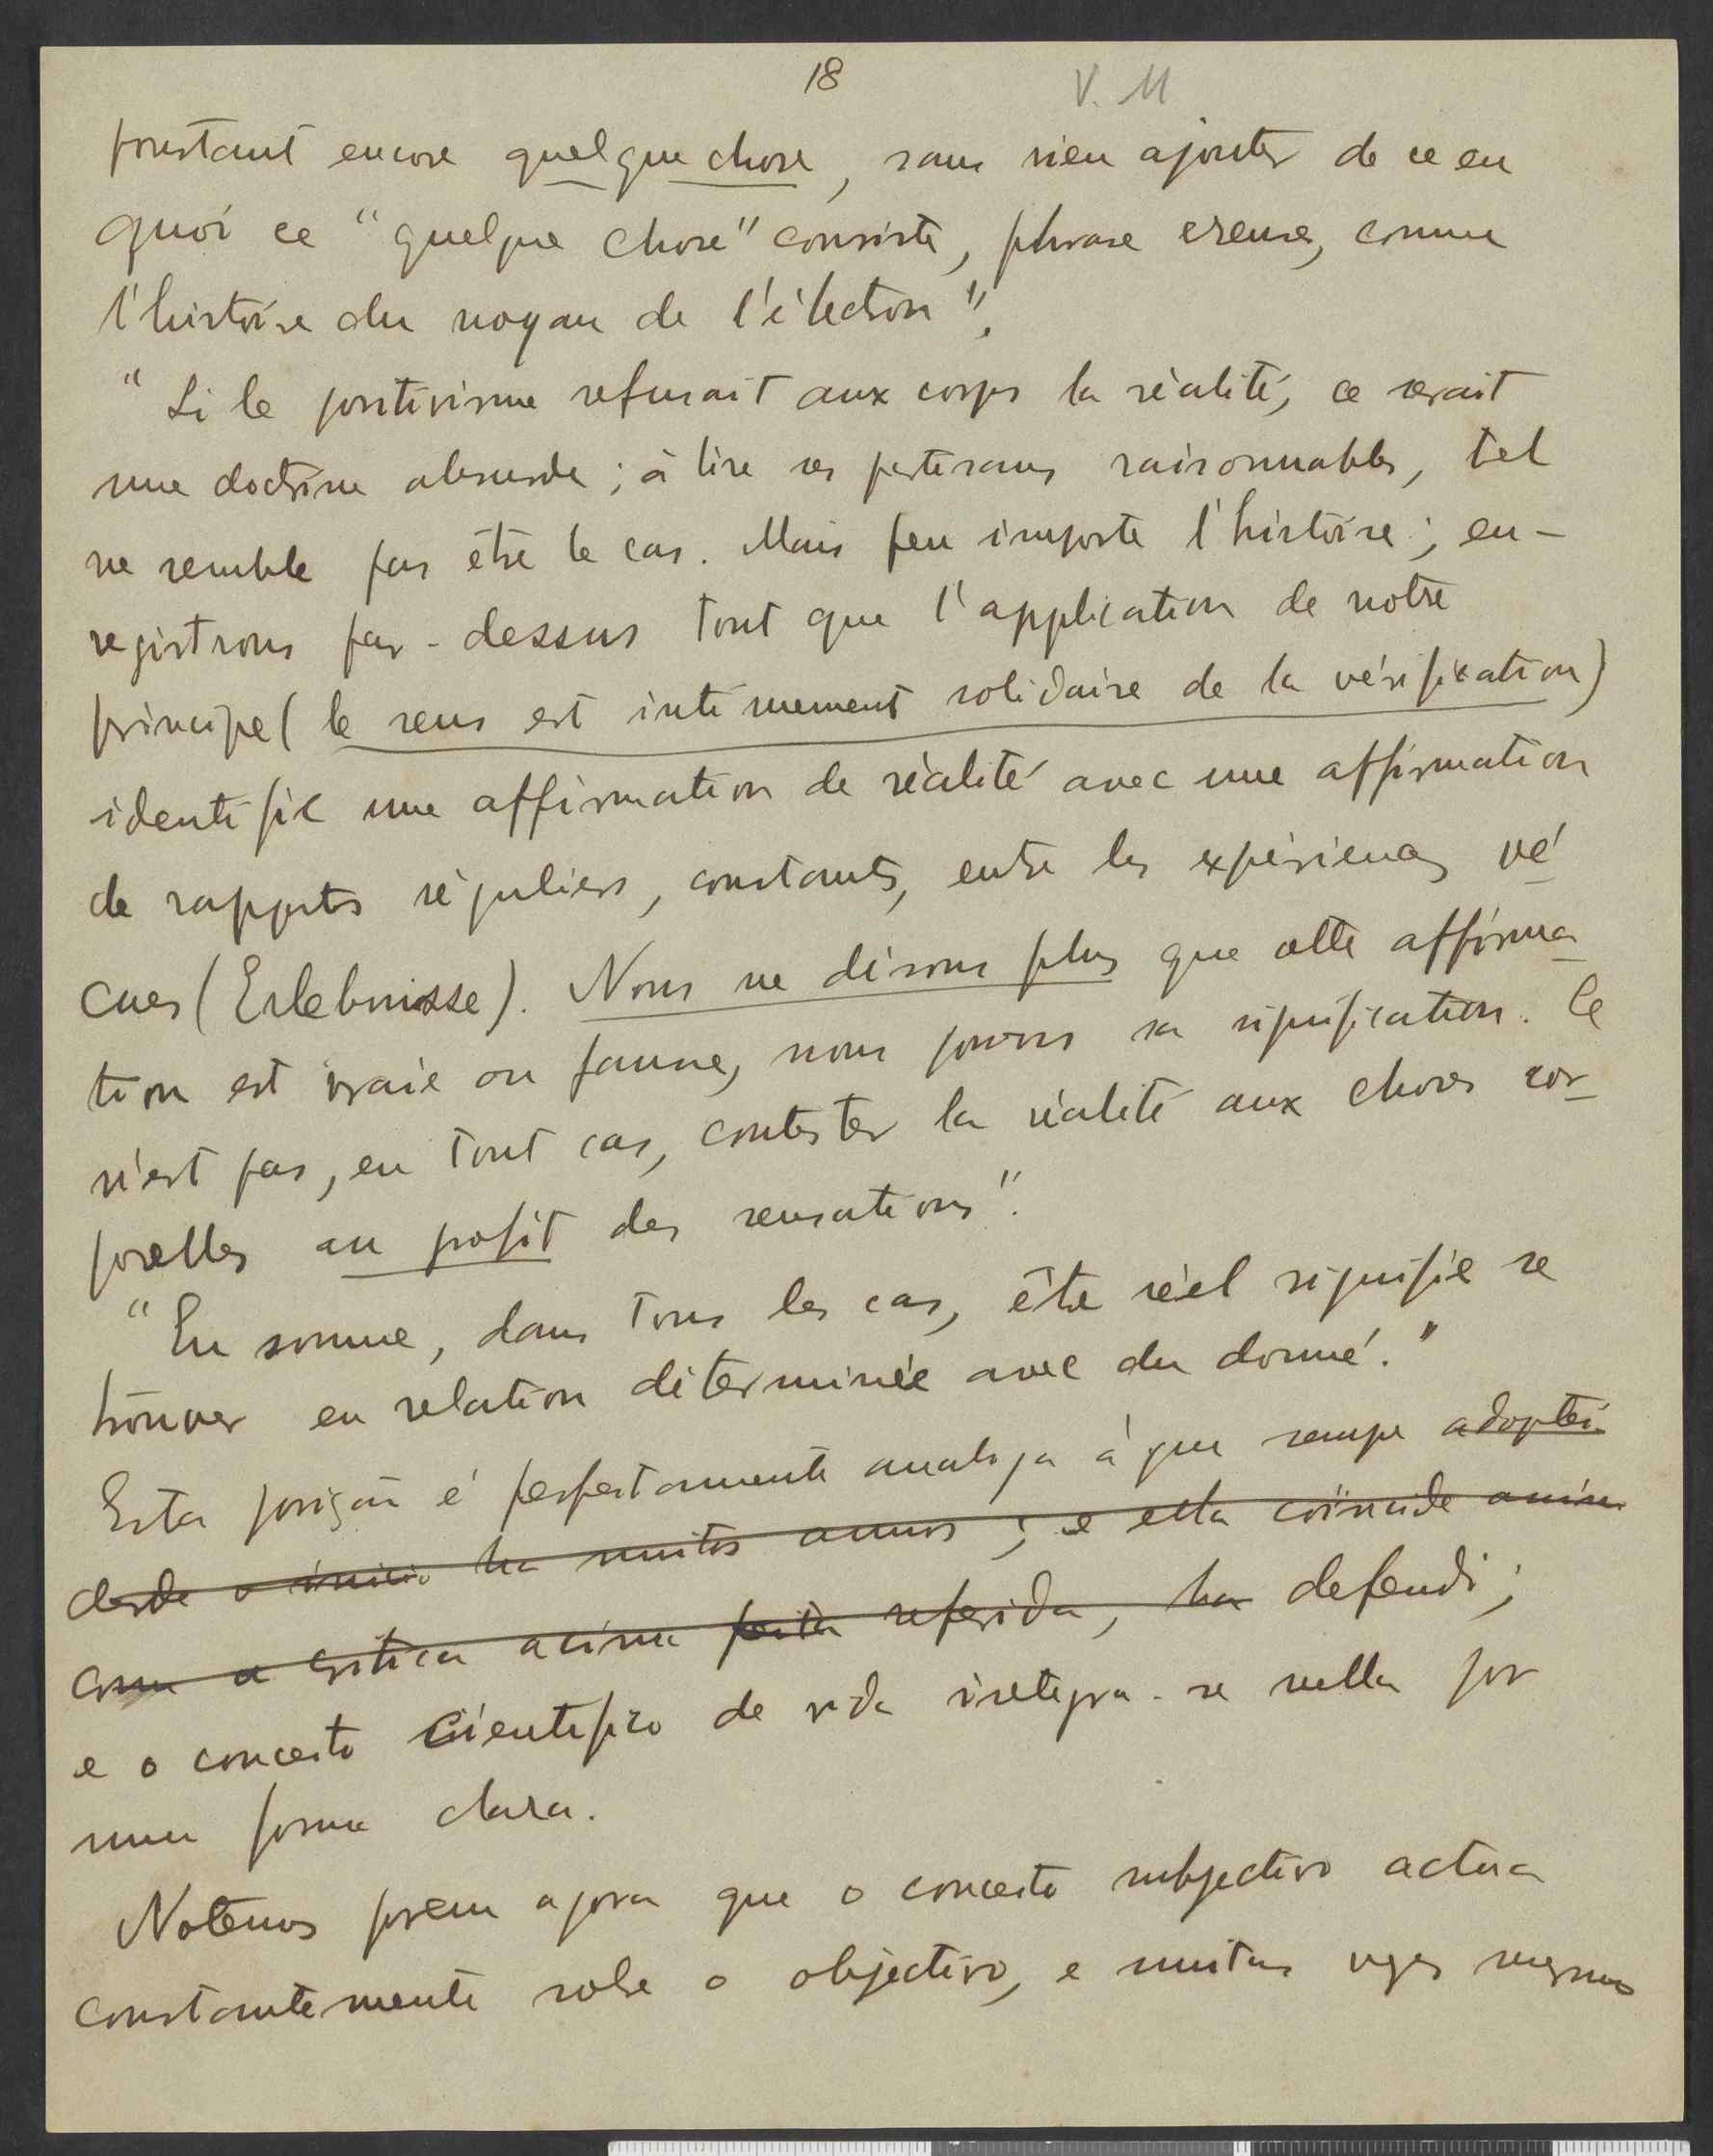 18 V. M
pourtant encore quelque chose, sans rien ajouter de ce en
quoi ce "quelque chose" consiste, phrase creuse, comme
l'histoire du noyau de l'électron".
"Si le positivisme refusait aux corps la réalité, ce serait
une doctrine absurde; à lire ses partisans raisonnables, tel
ne semble pas être le cas. Mais peu importe l'histoire; en-
registrons par-dessus tout que l'application de notre
principe (le sens est intimement solidaire de la vérification)
identifie une affirmation de réalité avec une affirmation
de rapports réguliers, constants, entre les expériences vé
cues (Erlebnisse). Nous ne disons plus que cette affirma
tion est vraie ou fausse, nous posons sa signification. Ce
n'est pas, en tout cas, contester la réalité aux choses cor
porelles au profit des sensations".
"En somme, dans tous les cas, être réel signifie se
trouver en relation déterminée avec du donné."
Esta posição é perfeitamente analoga á que sempre adoptei
desde o inicio ha muitos annos; e ella coïncide assim
com a critica acima feita referida, ha defendi;
e o conceito cientifico de vida integra-se nella por
uma forma clara.
Notemos porem agora que o conceito subjectivo actua
constantemente sobre o objectivo, e muitas vezes mesmo